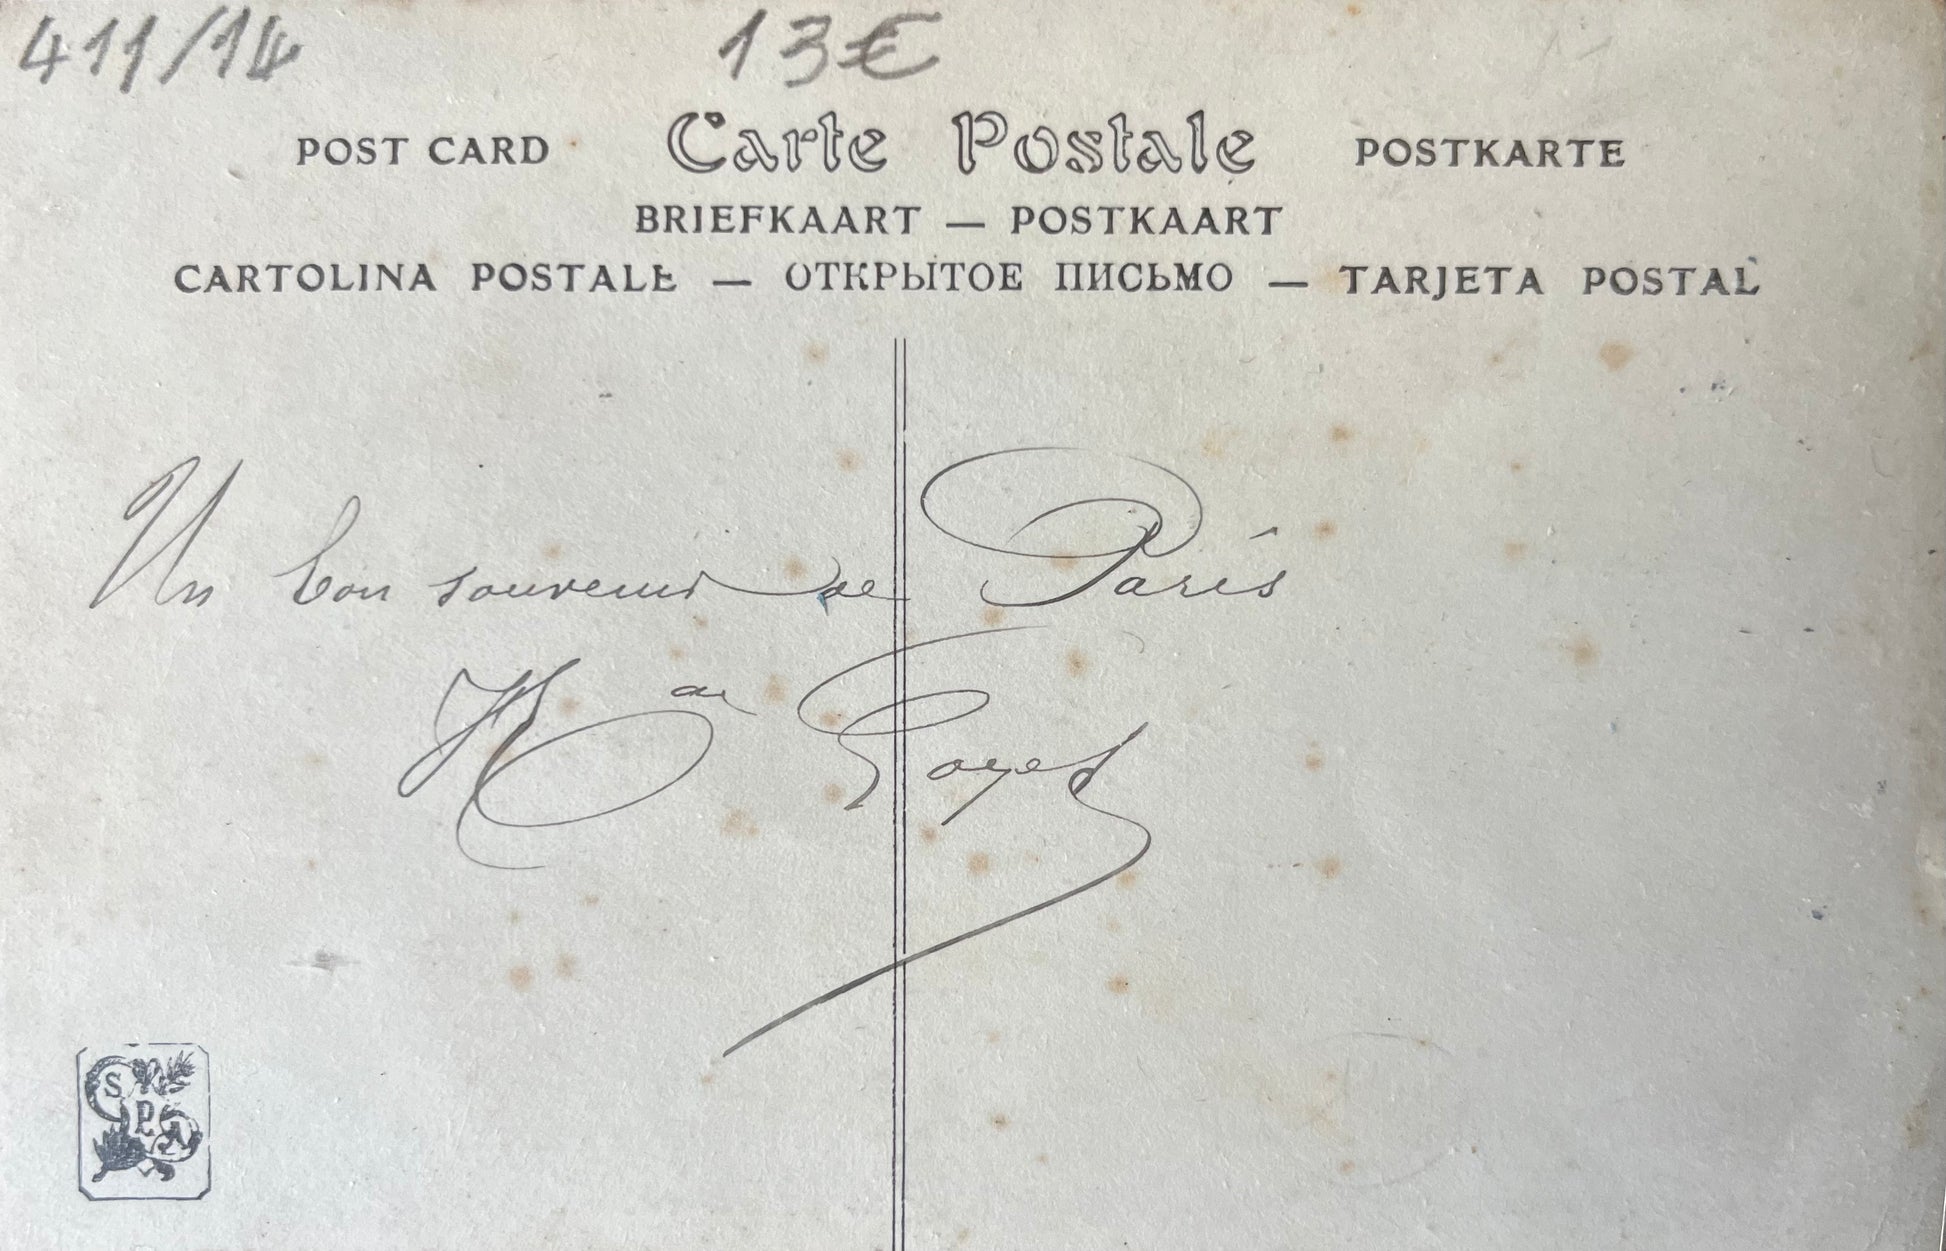 411/14 13€
POST CARD Carte Postale POSTKARTE
BRIEFKAART — POSTKAART
CARTOLINA POSTALE — ОТКРЫТОЕ ПИСЬМО — TARJETA POSTAL
Un bon souvenir de Paris
S P A